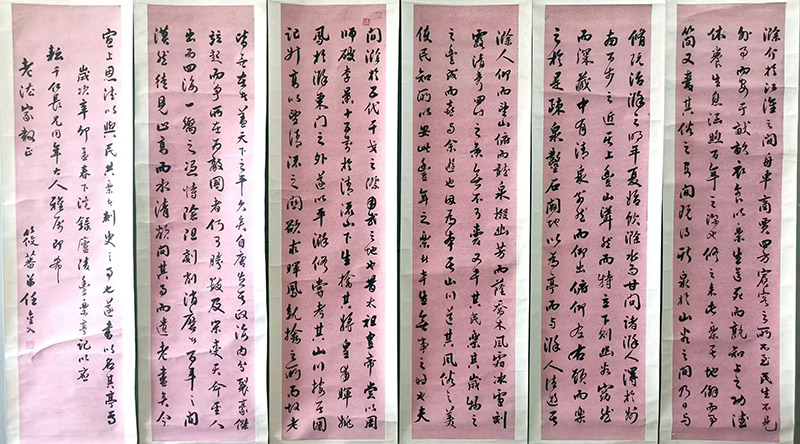 滁介於江淮之間舟車商賈四方賓客之所不至民生不見
外事而安於畎畝衣食以樂生送死而孰知上之功德
休養生息涵煦百年之深也修之來此樂其地僻而事
簡又愛其俗之安閒既得斯泉於山谷之間乃日與
脩既治滁之明年夏始飲滁水而甘問諸滁人得於州
南百步之近其上豐山聳然而特立下則幽谷窈然
而深藏中有清泉滃然而仰出俯仰左右顧而樂
之於是疏泉鑿石闢地以為亭而與滁人往遊其
滁人仰而望山俯而聽泉掇幽芳而蔭喬木風霜冰雪刻
露清秀四時之景無不可愛又幸其民樂其歲物之
豐成而喜與余遊也因為本其山川道其風俗之美
使民知所以安此豐年之樂者幸生無事之時也夫
間滁於五代干戈之際用武之地也昔太祖皇帝嘗以周
師破李景十五萬於清流山下生擒其將皇甫暉姚
鳳於滁東門之外遂以平滁修嘗考其山川按其圖
記升高以望清流之關欲求暉鳳就擒之所而故老
皆無在者蓋天下之平久矣自唐失其政海內分裂豪傑
並起而爭所在為敵國者何可勝數及宋受天命聖人
出而四海一嚮之憑恃險阻剗削消磨百年之間
漠然徒見山高而水清欲問其事而遺老盡矣今
宣上恩德以與民共樂刺史之事也遂書以名其亭焉
歲次辛卯孟春下浣錄廬陵豐樂亭記以應
耘千仁長兄同年大人雅屬即希
老法家教正
筱蕃弟任